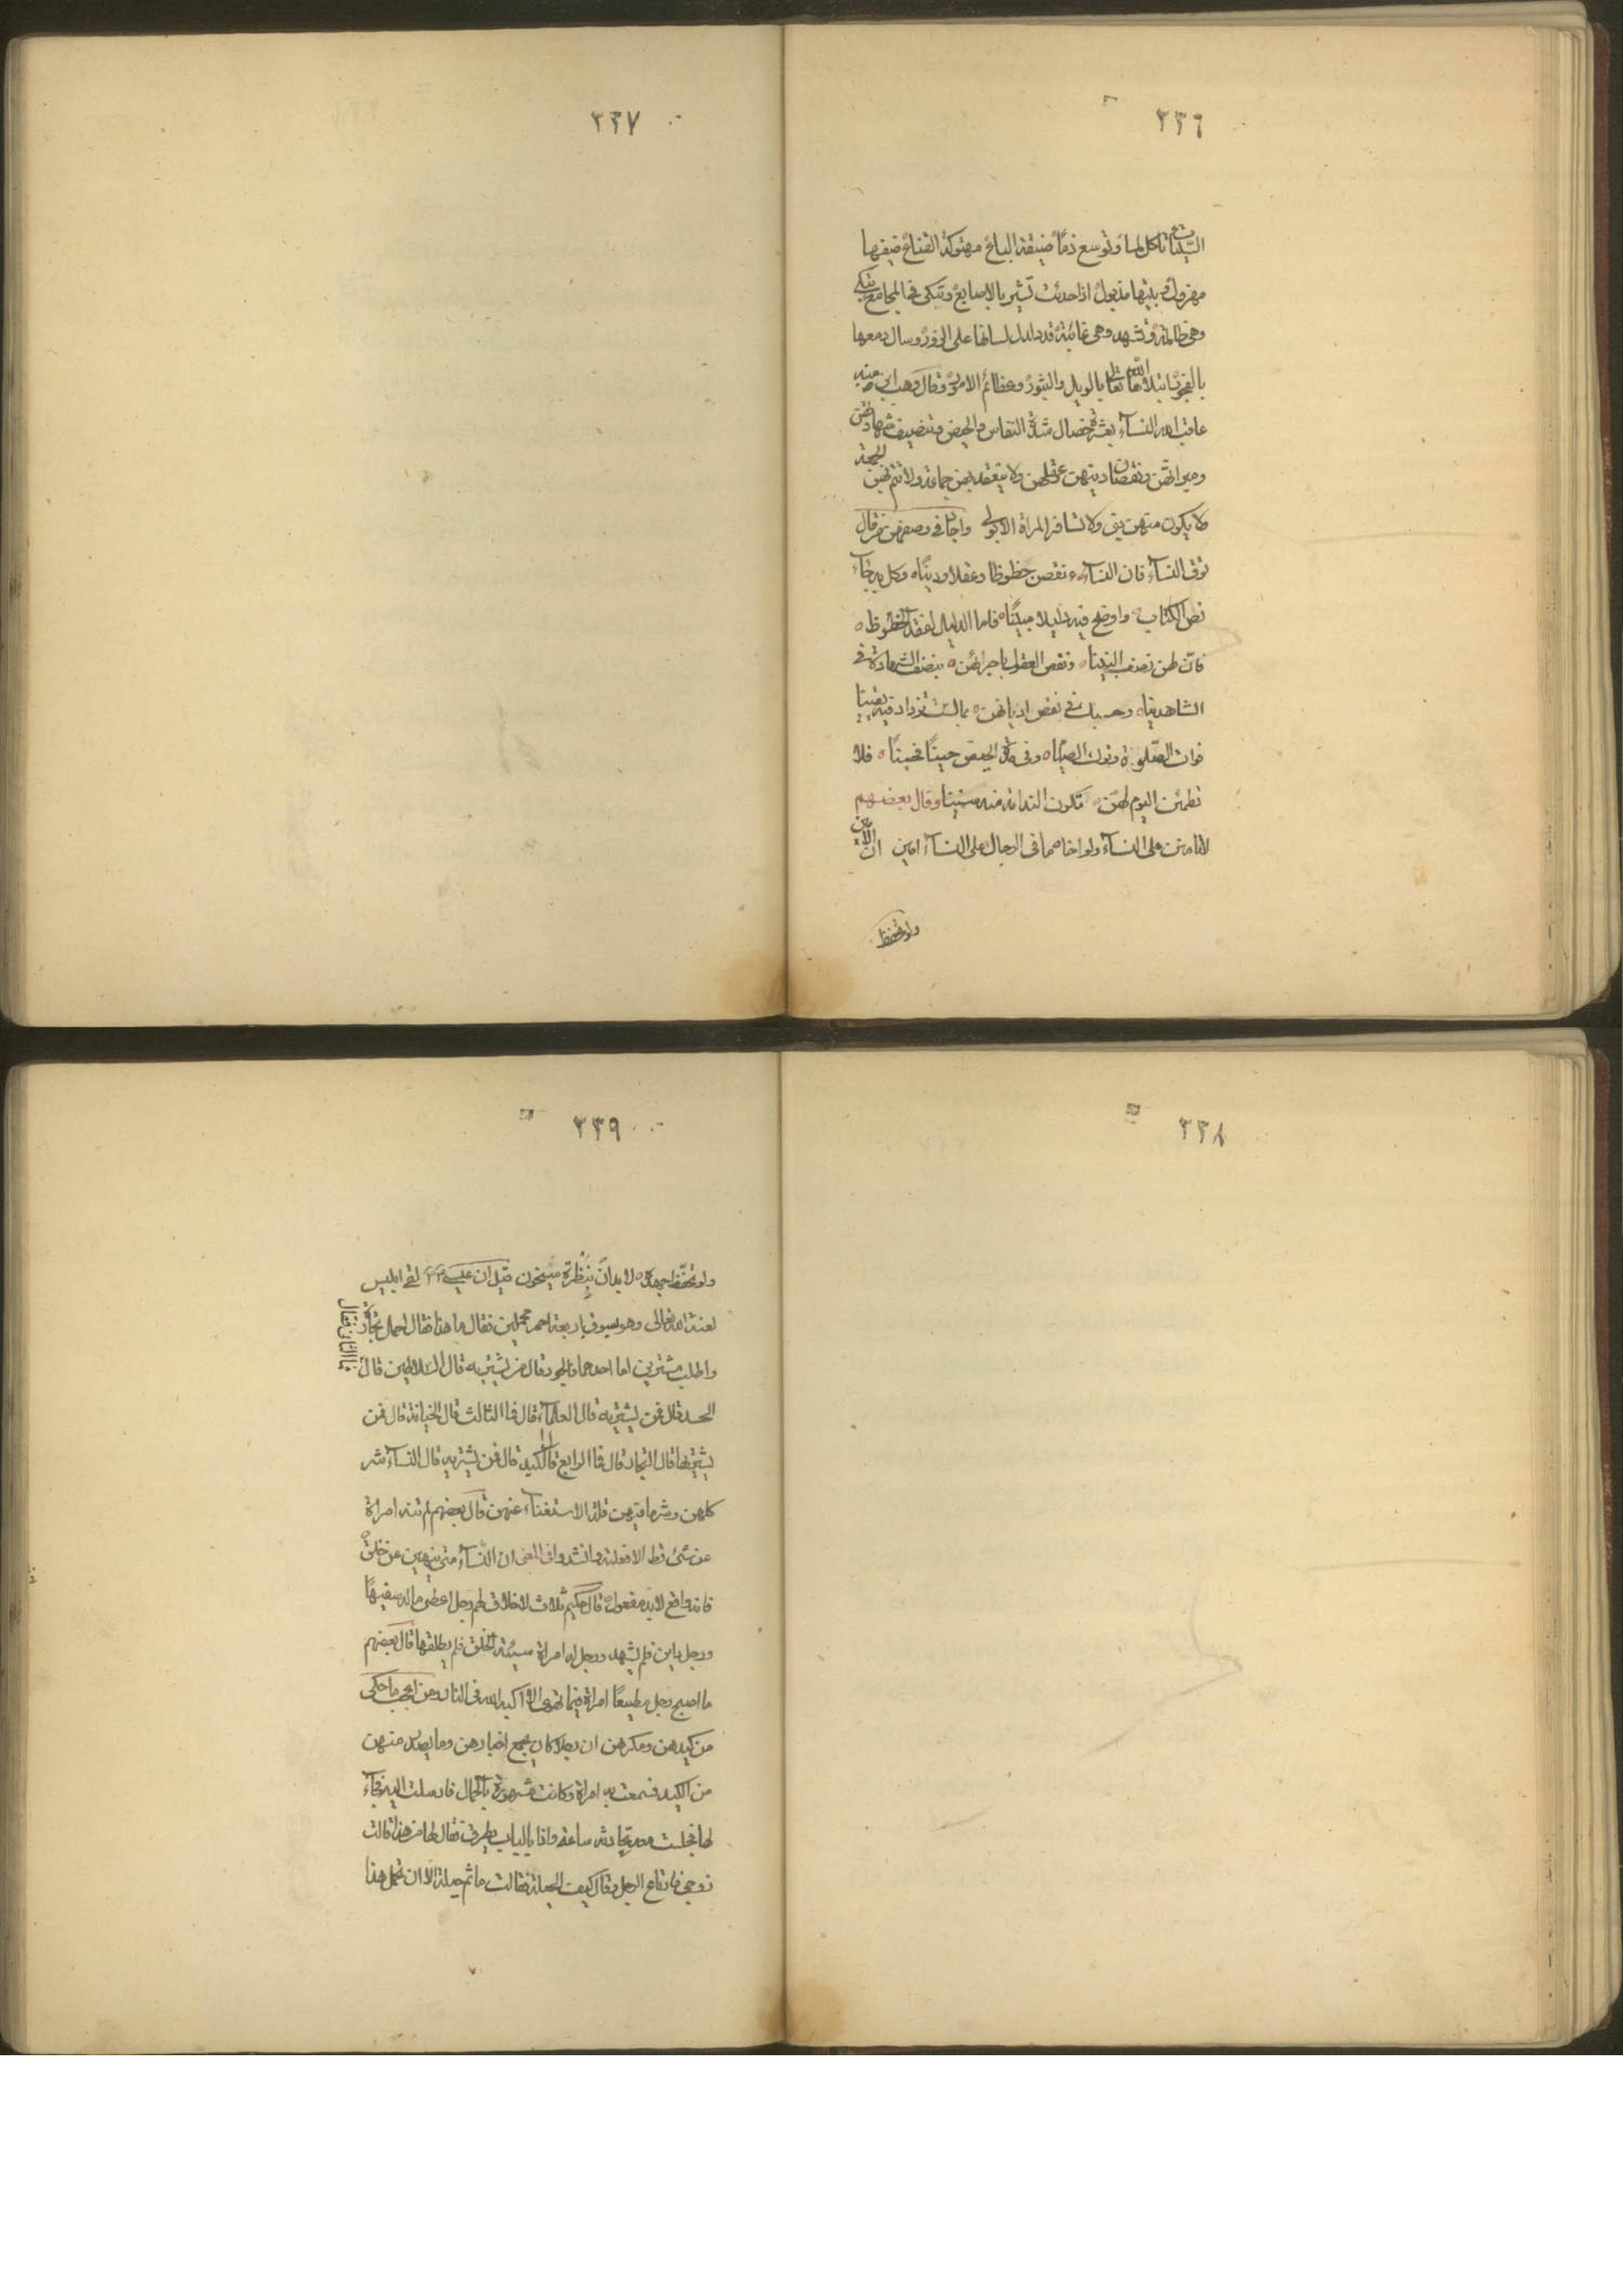 ٣٣٦
السيئات تاكل لما وتوسع ذما ضيقة الباع مهتوكة القناع ضيفها
مهزول وبيتها مذبول اذا حدثت تشير بالاصابع وتبكى فى المجامع تبكى
وهى ظالمة وتشهد وهى غائبة قد دلدل لسانها على الزور وسال دمعها
بالفجور ابتلاها الله تعالى بالويل والثبور وعظائم الامور وقال وهب ابن منبه
عاقب الله النسآء بعشر خصال شدة النفاس والحيض وتنصيف شهادتهن
وميراثهن ونقصان دينهن وعقلهن ولا ينعقد بهن جماعة ولا تتم بهن الجمعة
ولا يكون منهن نبى ولا تسافر المراة الا بولى واجاد فى وصفهن من قال
توق النسآء فان النسآء نقصن حظوظا وعقلا ودينا وكل به جآء
نص الكتاب واوضح فيه دليلا مبينا فاما الدليل لفقد الحظوظ
فان لهن نصف البنينا ونقص العقول باجرائهن بنصف الشهادة فى
الشاهدينا وحسبك فى نقص اديانهن بما لست تزداد فيه يقينا
فوات الصلوة وترك الصيام وفى مدة الحيض حينا فحينا فلا
تطمئن اليوم لهن تكون الندامة منه سنينا وقال بعضهم
لا تامنن على النسآء ولو اخا ما فى الرجال على النسآء امين ان الامين
ولو تحفظ
٣٣٧
٣٣٨
٣٣٩
ولو تحفظ جهده لا بد ان بنظرة سيخون قيل ان عيسى عم لقى ابليس
لعنه الله تعالى وهو يسوق اربعة احمر محملين فقال ما هذا فقال احمال تجارة
واطلب مشترين اما احدهما فالجور قال من يشتريه قال السلاطين قال فما الثانى فقال
الحسد قال فمن يشتريه قال العلمآء قال فما الثالث قال الخيانة قال فمن
يشتريها قال التجار قال فما الرابع قال الكيد قال فمن يشتريه قال النسآء شر
كلهن وشر ما فيهن قلة الاستغنآء عنهن قال بعضهم لم تنه امراة
عن شئ قط الا فعلته وانشدوا فى المعنى ان النسآء متى ينهين عن خلق
فانه واقع لا بد مفعول قال حكيم ثلاث لا خلاق لهم رجل اعطى ماله سفيها
ورجل باين فلم يشهد ورجل له امراة سيئة الخلق فلم يطلقها قال بعضهم
ما اصبح رجل مطيعا امراة فيما تهوى الا اكبه الله فى النار ومن اعجب ما حكى
من كيدهن ومكرهن ان رجلا كان يجمع اخبارهن وما يصدر منهن
من الكيد فسمعت به امراة وكانت مشهورة بالجمال فارسلت اليه فجآء
لها فجلست معه تحادثه ساعة واذا بالباب يطرق فقال لها من هذا قالت
زوجى فارتاع الرجل وقال كيف الحيلة فقالت ما ثم حيلة الا ان تحمل هذا